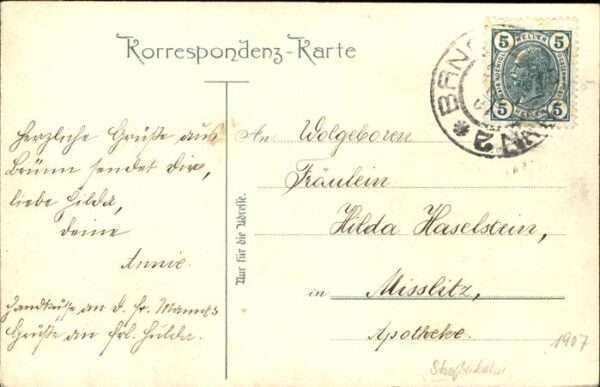 Korrespondenz-Karte
5 5
5 5
BRNO
2
Herzliche Grüße aus
Brünn sendet Dir,
liebe Hilda,
Deine
Annie.
Handküsse an d. fr. Mama
Grüße an Frl. Hulda.
Nur für die Adresse.
An Wolgeboren
Fräulein
Hilda Haselstein,
in Misslitz,
Apotheke.
1907